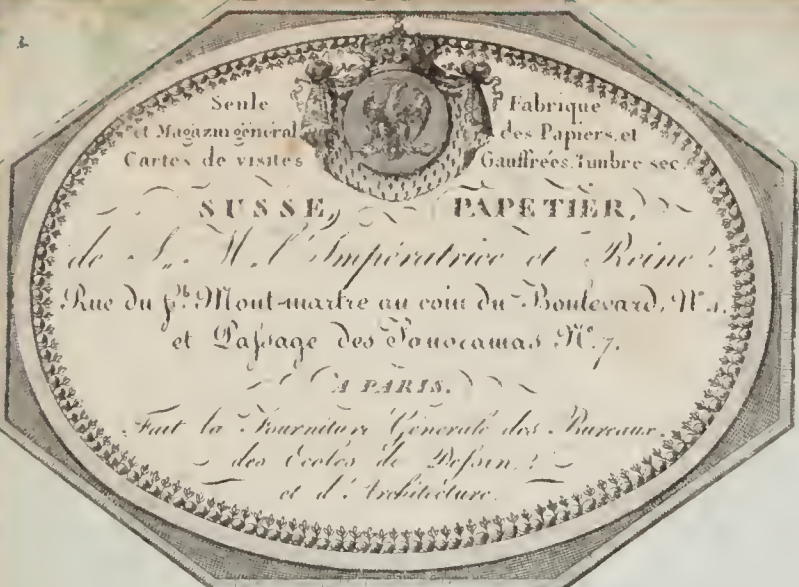 Seule Fabrique
et Magazin général des Papiers, et
Cartes de visites Gauffrées, timbre sec.
SUSSE, PAPETIER,
de S. M. l'Impératrice et Reine.
Rue du fb. Mont-martre au coin du Boulevard, No. 1.
et Passage des Panoramas No. 7.
A PARIS.
Fait la Fourniture Générale des Bureaux.
des Ecoles de Dessin.
et d'Architecture.